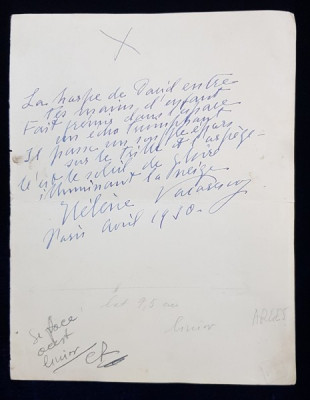 La harpe de David entre
tes mains, d'enfant
Fait frémir dans l'espace
un écho triomphant
Il passe un souffle épars
sur le trille et l'arpège -
C'est le soleil de gloire
illuminant la neige
Hélène Vacaresco
Paris Avril 1930 -
9,5 cm
ARLES